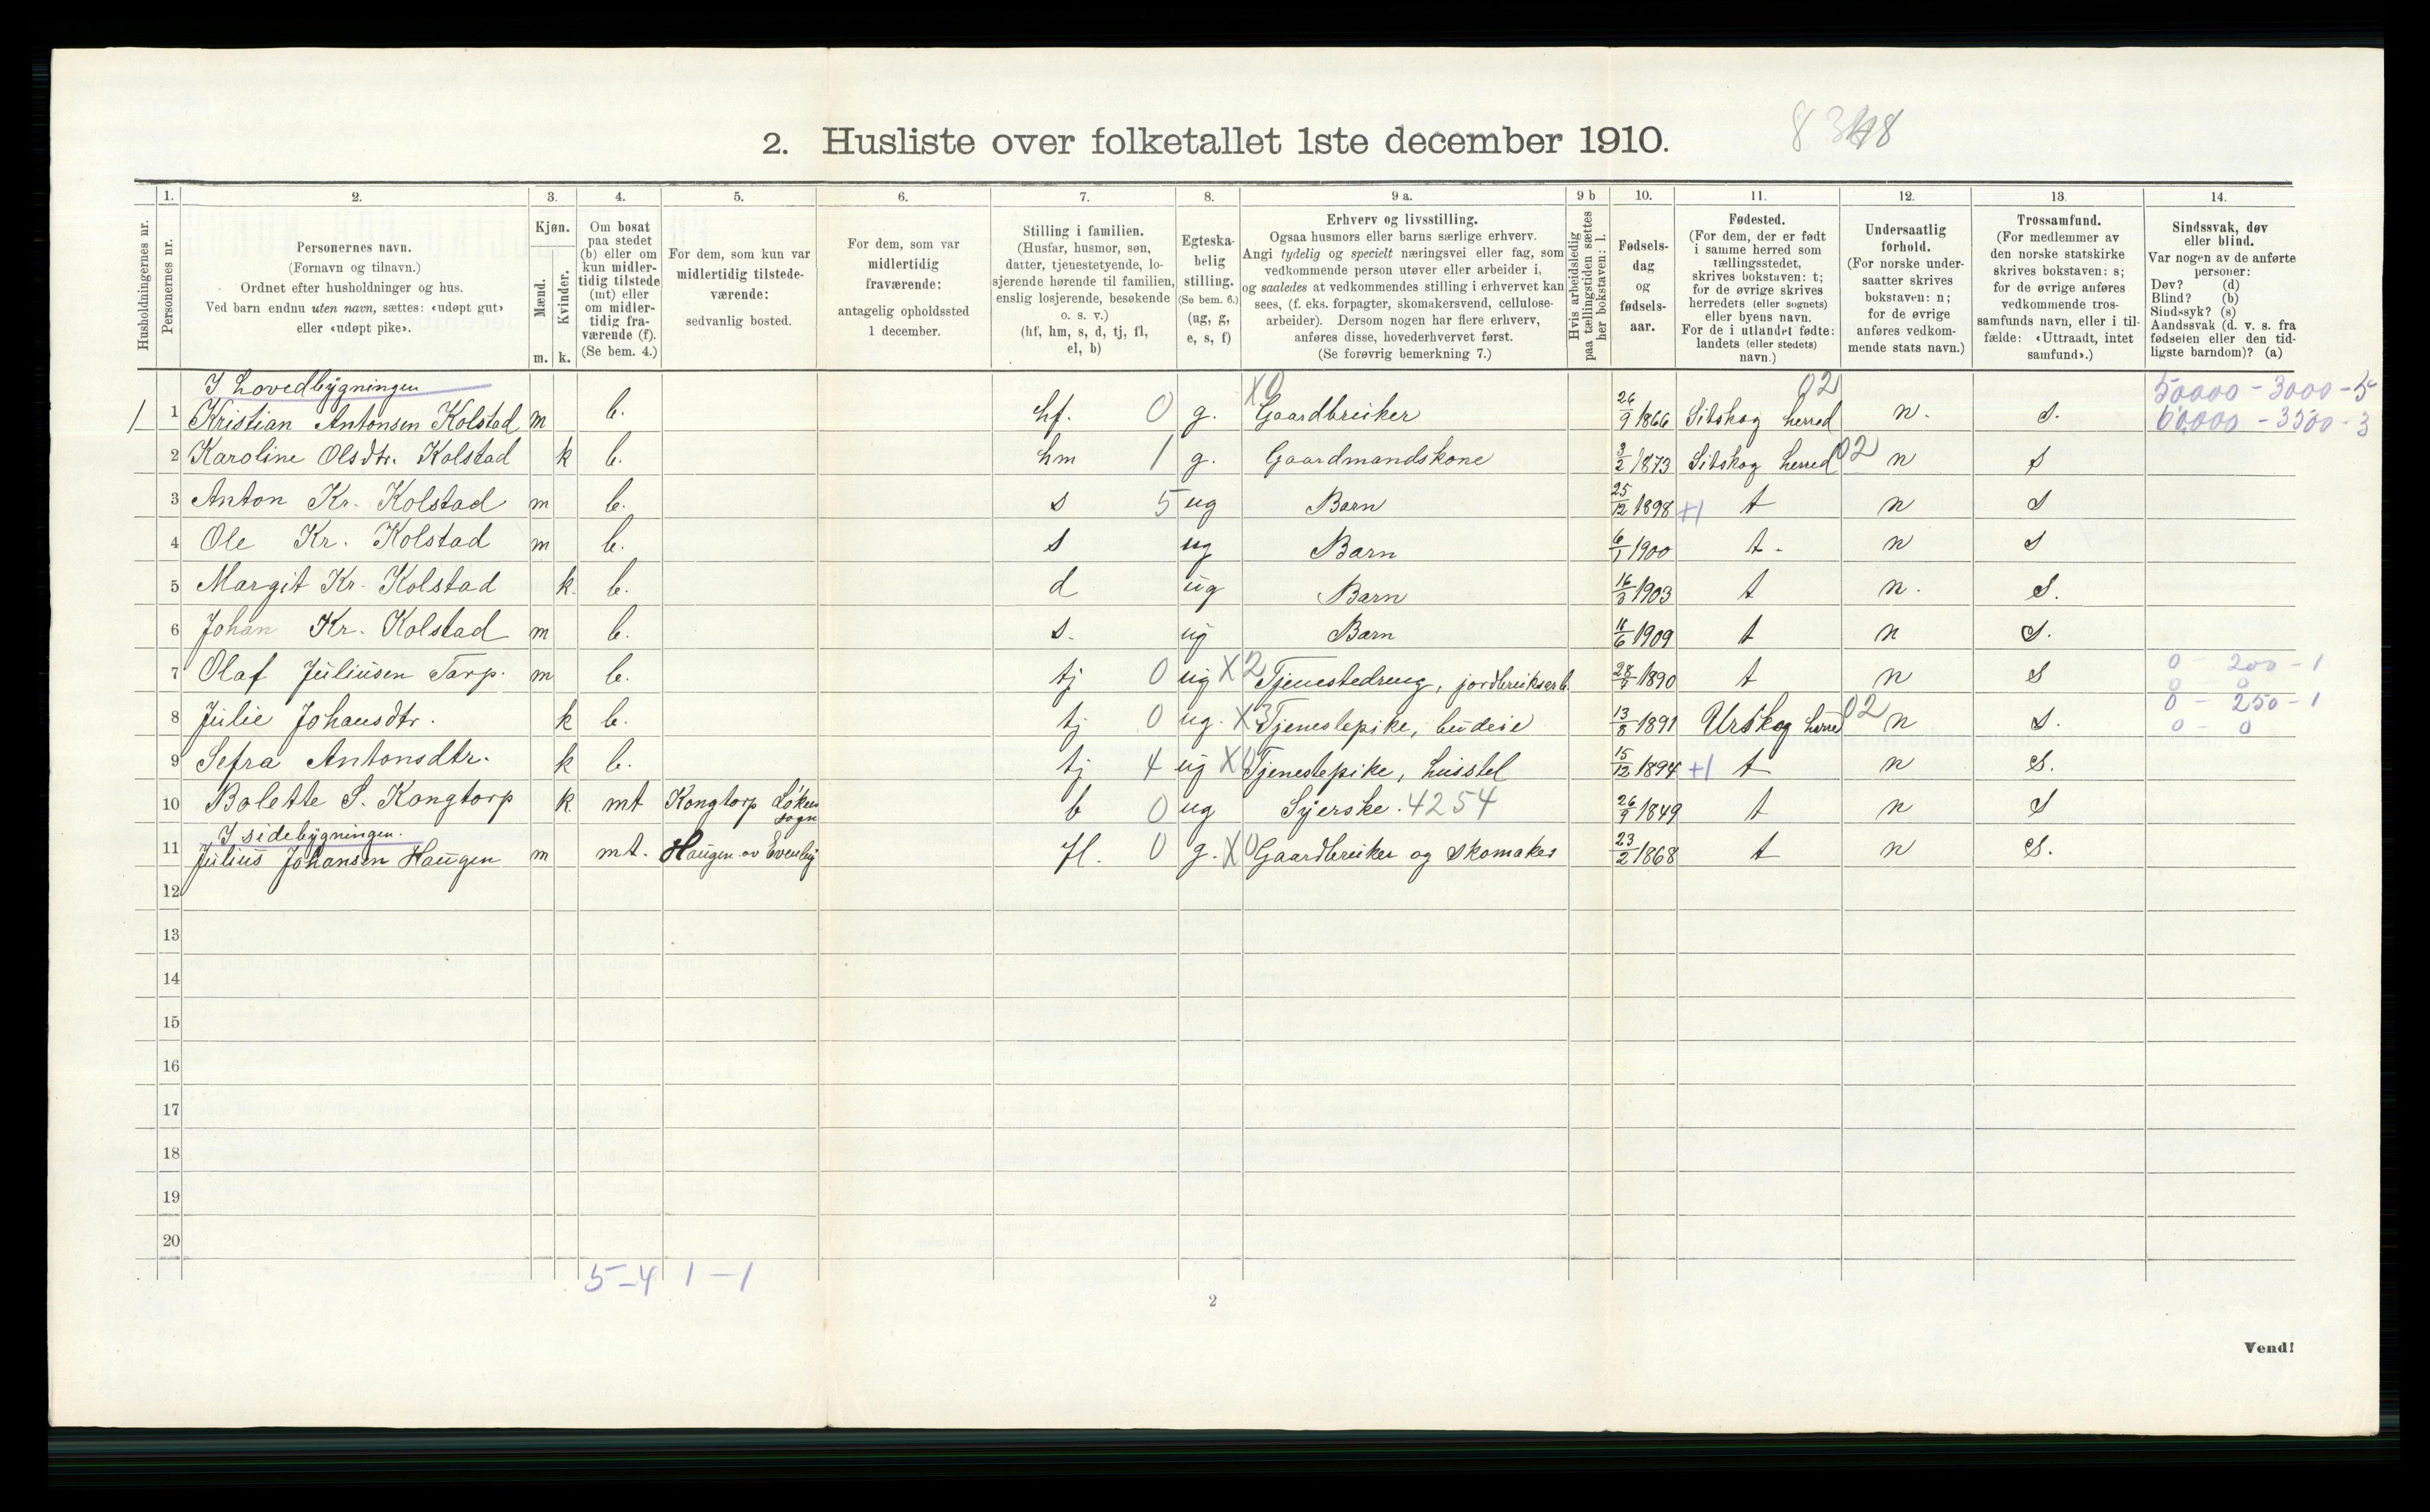 2. Husliste over folketallet 1ste december 1910.
8348
Husholdningernes nr.
1. Personernes nr.
2. Personernes navn.
(Fornavn og tilnavn.)
Ordnet efter husholdninger og hus.
Ved barn endnu uten navn, sættes: «udøpt gut»
eller «udøpt pike».
3. Kjøn.
Mænd. m.
Kvinder. k.
4. Om bosat
paa stedet
(b) eller om
kun midler-
tidig tilstede
(mt) eller
om midler-
tidig fra-
værende (f).
(Se bem. 4.)
5. For dem, som kun var
midlertidig tilstede-
værende:
sedvanlig bosted.
6. For dem, som var
midlertidig
fraværende:
antagelig opholdssted
1 december.
7. Stilling i familien.
(Husfar, husmor, søn,
datter, tjenestetyende, lo-
sjerende hørende til familien,
enslig losjerende, besøkende
o. s. v.)
(hf, hm, s, d, tj, fl,
el, b)
8. Egteska-
belig
stilling.
(Se bem. 6.)
(ug, g,
e, s, f)
9 a. Erhverv og livsstilling.
Ogsaa husmors eller barns særlige erhverv.
Angi tydelig og specielt næringsvei eller fag, som
vedkommende person utøver eller arbeider i,
og saaledes at vedkommendes stilling i erhvervet kan
sees, (f. eks. forpagter, skomakersvend, cellulose-
arbeider). Dersom nogen har flere erhverv,
anføres disse, hovederhvervet først.
(Se forøvrig bemerkning 7.)
9 b Hvis arbeidsledig
paa tællingstiden sættes
her bokstaven: l.
10. Fødsels-
dag
og
fødsels-
aar.
11. Fødested.
(For dem, der er født
i samme herred som
tællingsstedet,
skrives bokstaven: t;
for de øvrige skrives
herredets (eller sognets)
eller byens navn.
For de i utlandet fødte:
landets (eller stedets)
navn.)
12. Undersaatlig
forhold.
(For norske under-
saatter skrives
bokstaven: n;
for de øvrige
anføres vedkom-
mende stats navn.)
13. Trossamfund.
(For medlemmer av
den norske statskirke
skrives bokstaven: s;
for de øvrige anføres
vedkommende tros-
samfunds navn, eller i til-
fælde: «Uttraadt, intet
samfund».)
14. Sindssvak, døv
eller blind.
Var nogen av de anførte
personer:
Døv? (d)
Blind? (b)
Sindssyk? (s)
Aandssvak (d. v. s. fra
fødselen eller den tid-
ligste barndom)? (a)
I hovedbygningen X0 02 50000 - 3000 - 5
1 1 Kristian Antonsen Kolstad m b. hf. 0 g. Gaardbruker 26/9 1866 Sitskog herred n. s. 60,000 - 3500 - 3
2 Karoline Olsdtr. Kolstad k b. hm 1 g. Gaardmandskone 3/2 1873 Sitskog herred 02 n s
3 Anton Kr. Kolstad m b. s 5 ug Barn 25/12 1898 +1 t n s
4 Ole Kr. Kolstad m b. s ug Barn 6/1 1900 t. n s
5 Margit Kr. Kolstad k. b. d ug Barn 16/3 1903 t n. s.
6 Johan Kr. Kolstad m b. s. ug Barn 11/6 1909 t n s.
7 Olaf Juliusen Tarp. m b. tj 0 ug X2 Tjenestedreng, jordbruksarb. 28/7 1890 t n s 0 - 200 - 1
0 - 0
8 Julie Johansdtr. k b. tj 0 ug. X3 Tjenestepike, budeie 13/8 1891 Urskog herred 02 n s. 0 - 250 - 1
0 - 0
9 Sefra Antonsdtr. k b. tj 4 ug X0 Tjenestepike, husstel 15/12 1894 +1 t n s.
10 Bolette S. Kongtorp k mt Kongtorp Løken sogn b 0 ug Syerske. 4254 26/9 1849 t n s
I sidebygningen.
11 Julius Johansen Haugen m mt. Haugen av Evenby fl. 0 g. X0 Gaardbruker og skomaker 23/2 1868 t n s.
12
13
14
15
16
17
18
19
20
5-4 1-1
2
Vend!